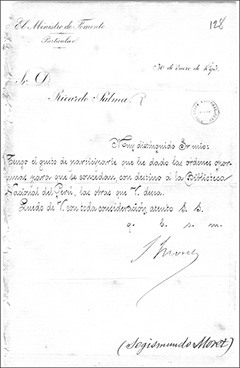 El Ministro de Fomento
Particular
128
30 de Enero de 1893.
S. D.
Ricardo Palma
Muy distinguido Sr. mio:
Tengo el gusto de participarle que he dado las ordenes opor-
tunas para que se concedan, con destino á la Biblioteca
Nacional del Perú, las obras que V. desea.
Quedo de V. con toda consideración atento S. S.
q. b. s. m.
S Moret
(Segismundo Moret)